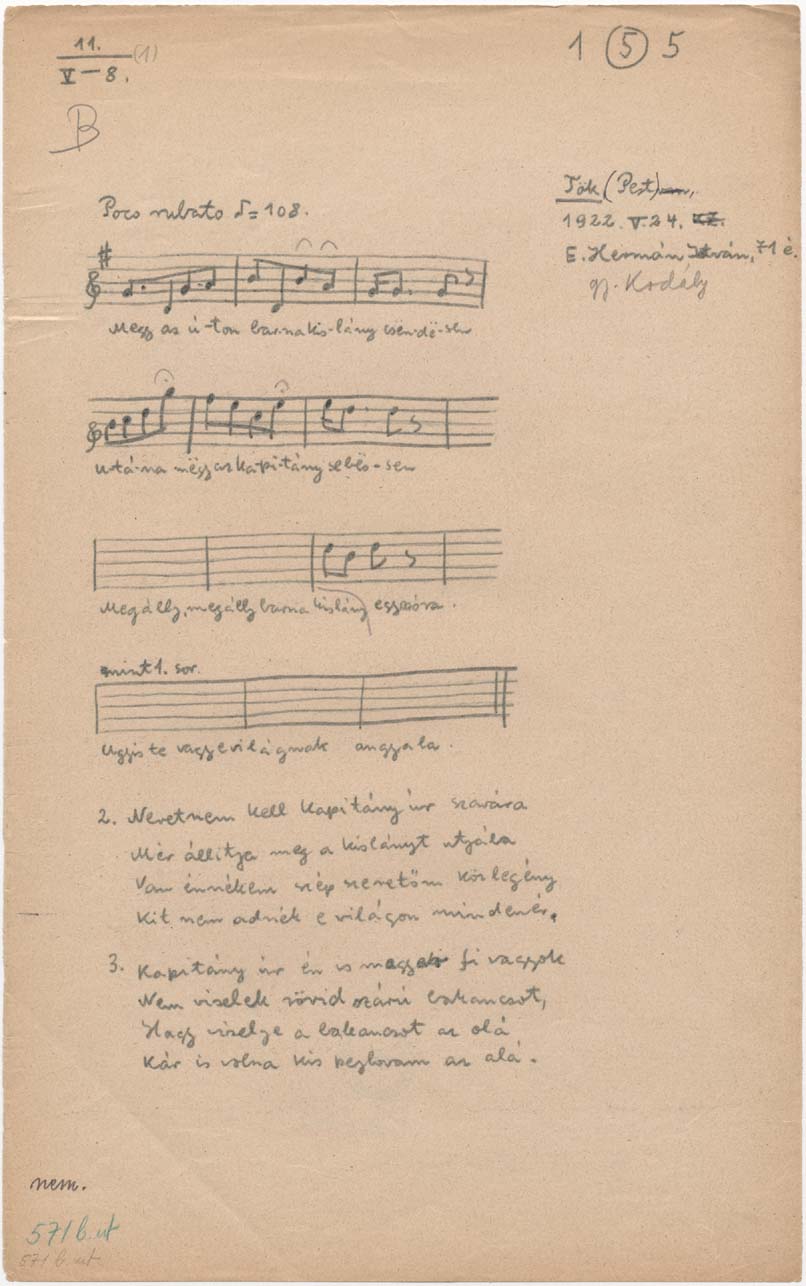 11.
V-8. (1)
1 5 5
B
Tök (Pest)
1922. V. 24.
E. Hermán István, 71 é.
gy. Kodály
Poco rubato ♪= 108.
Megy az ú-ton barna kis-lány csën-dë-sen
Utá-na mëgy az ka-pi-tány sebës-sen
Megállj, megállj barna kislány egy szóra.
mint 1. sor.
Ugyis te vagy e világnak angyala.
2. Neretnem kell kapitány úr szavára
Mér állitja meg a kislányt utjába
Van énnékem szép szeretőm közlegény
Kit nem adnék e világon mindenér.
3. Kapitány úr én is magyar fi vagyok
Nem viselek rövid szárú bakancsot,
Hagy viselje a bakancsot az olá
Kár is volna kis pejlovam az alá.
nem.
571 b. ut
571 b. ut